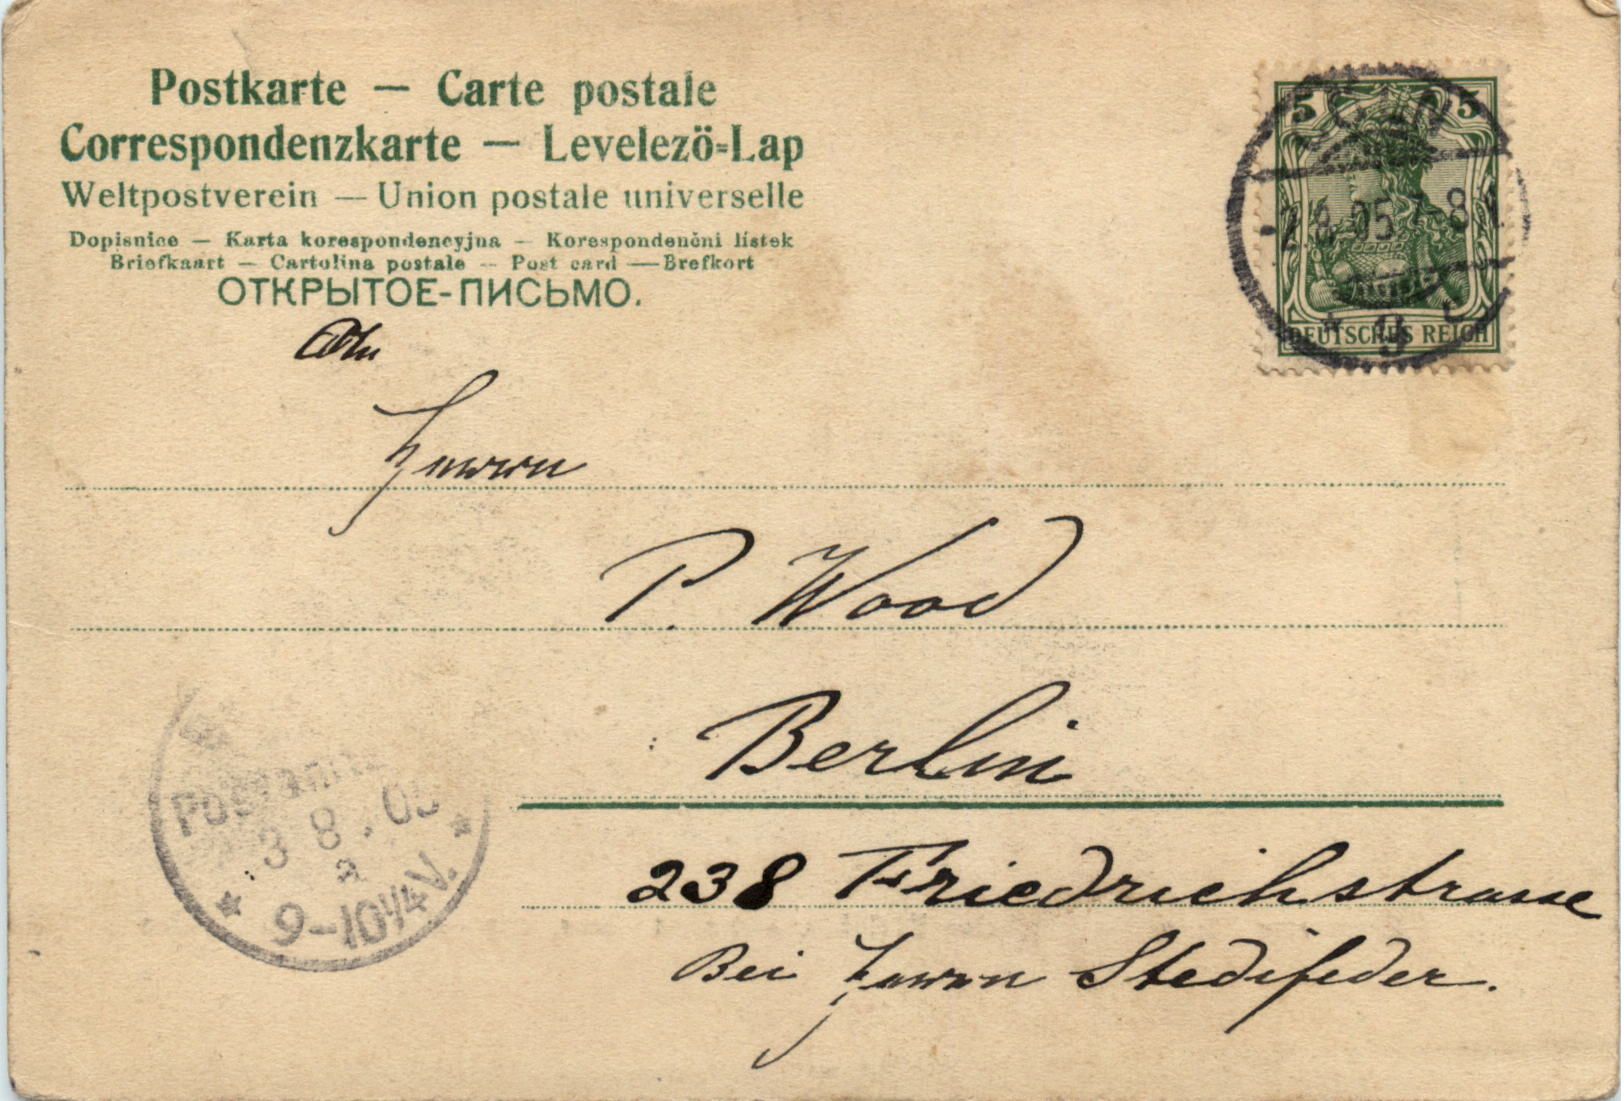 Postkarte — Carte postale
Correspondenzkarte — Levelező=Lap
Weltpostverein — Union postale universelle
Dopisnice — Karta korespondencyjna — Korespondenčni lístek
Briefkaart — Cartolina postale — Post card — Brefkort
ОТКРЫТОЕ-ПИСЬМО.
An
Herrn
P. Wood
Berlin
238 Friedrichstrasse
Bei Herrn Stedifeder.
5 5
2.8.05 7-8
DEUTSCHES REICH
3 8.05
a
9-10¼V.